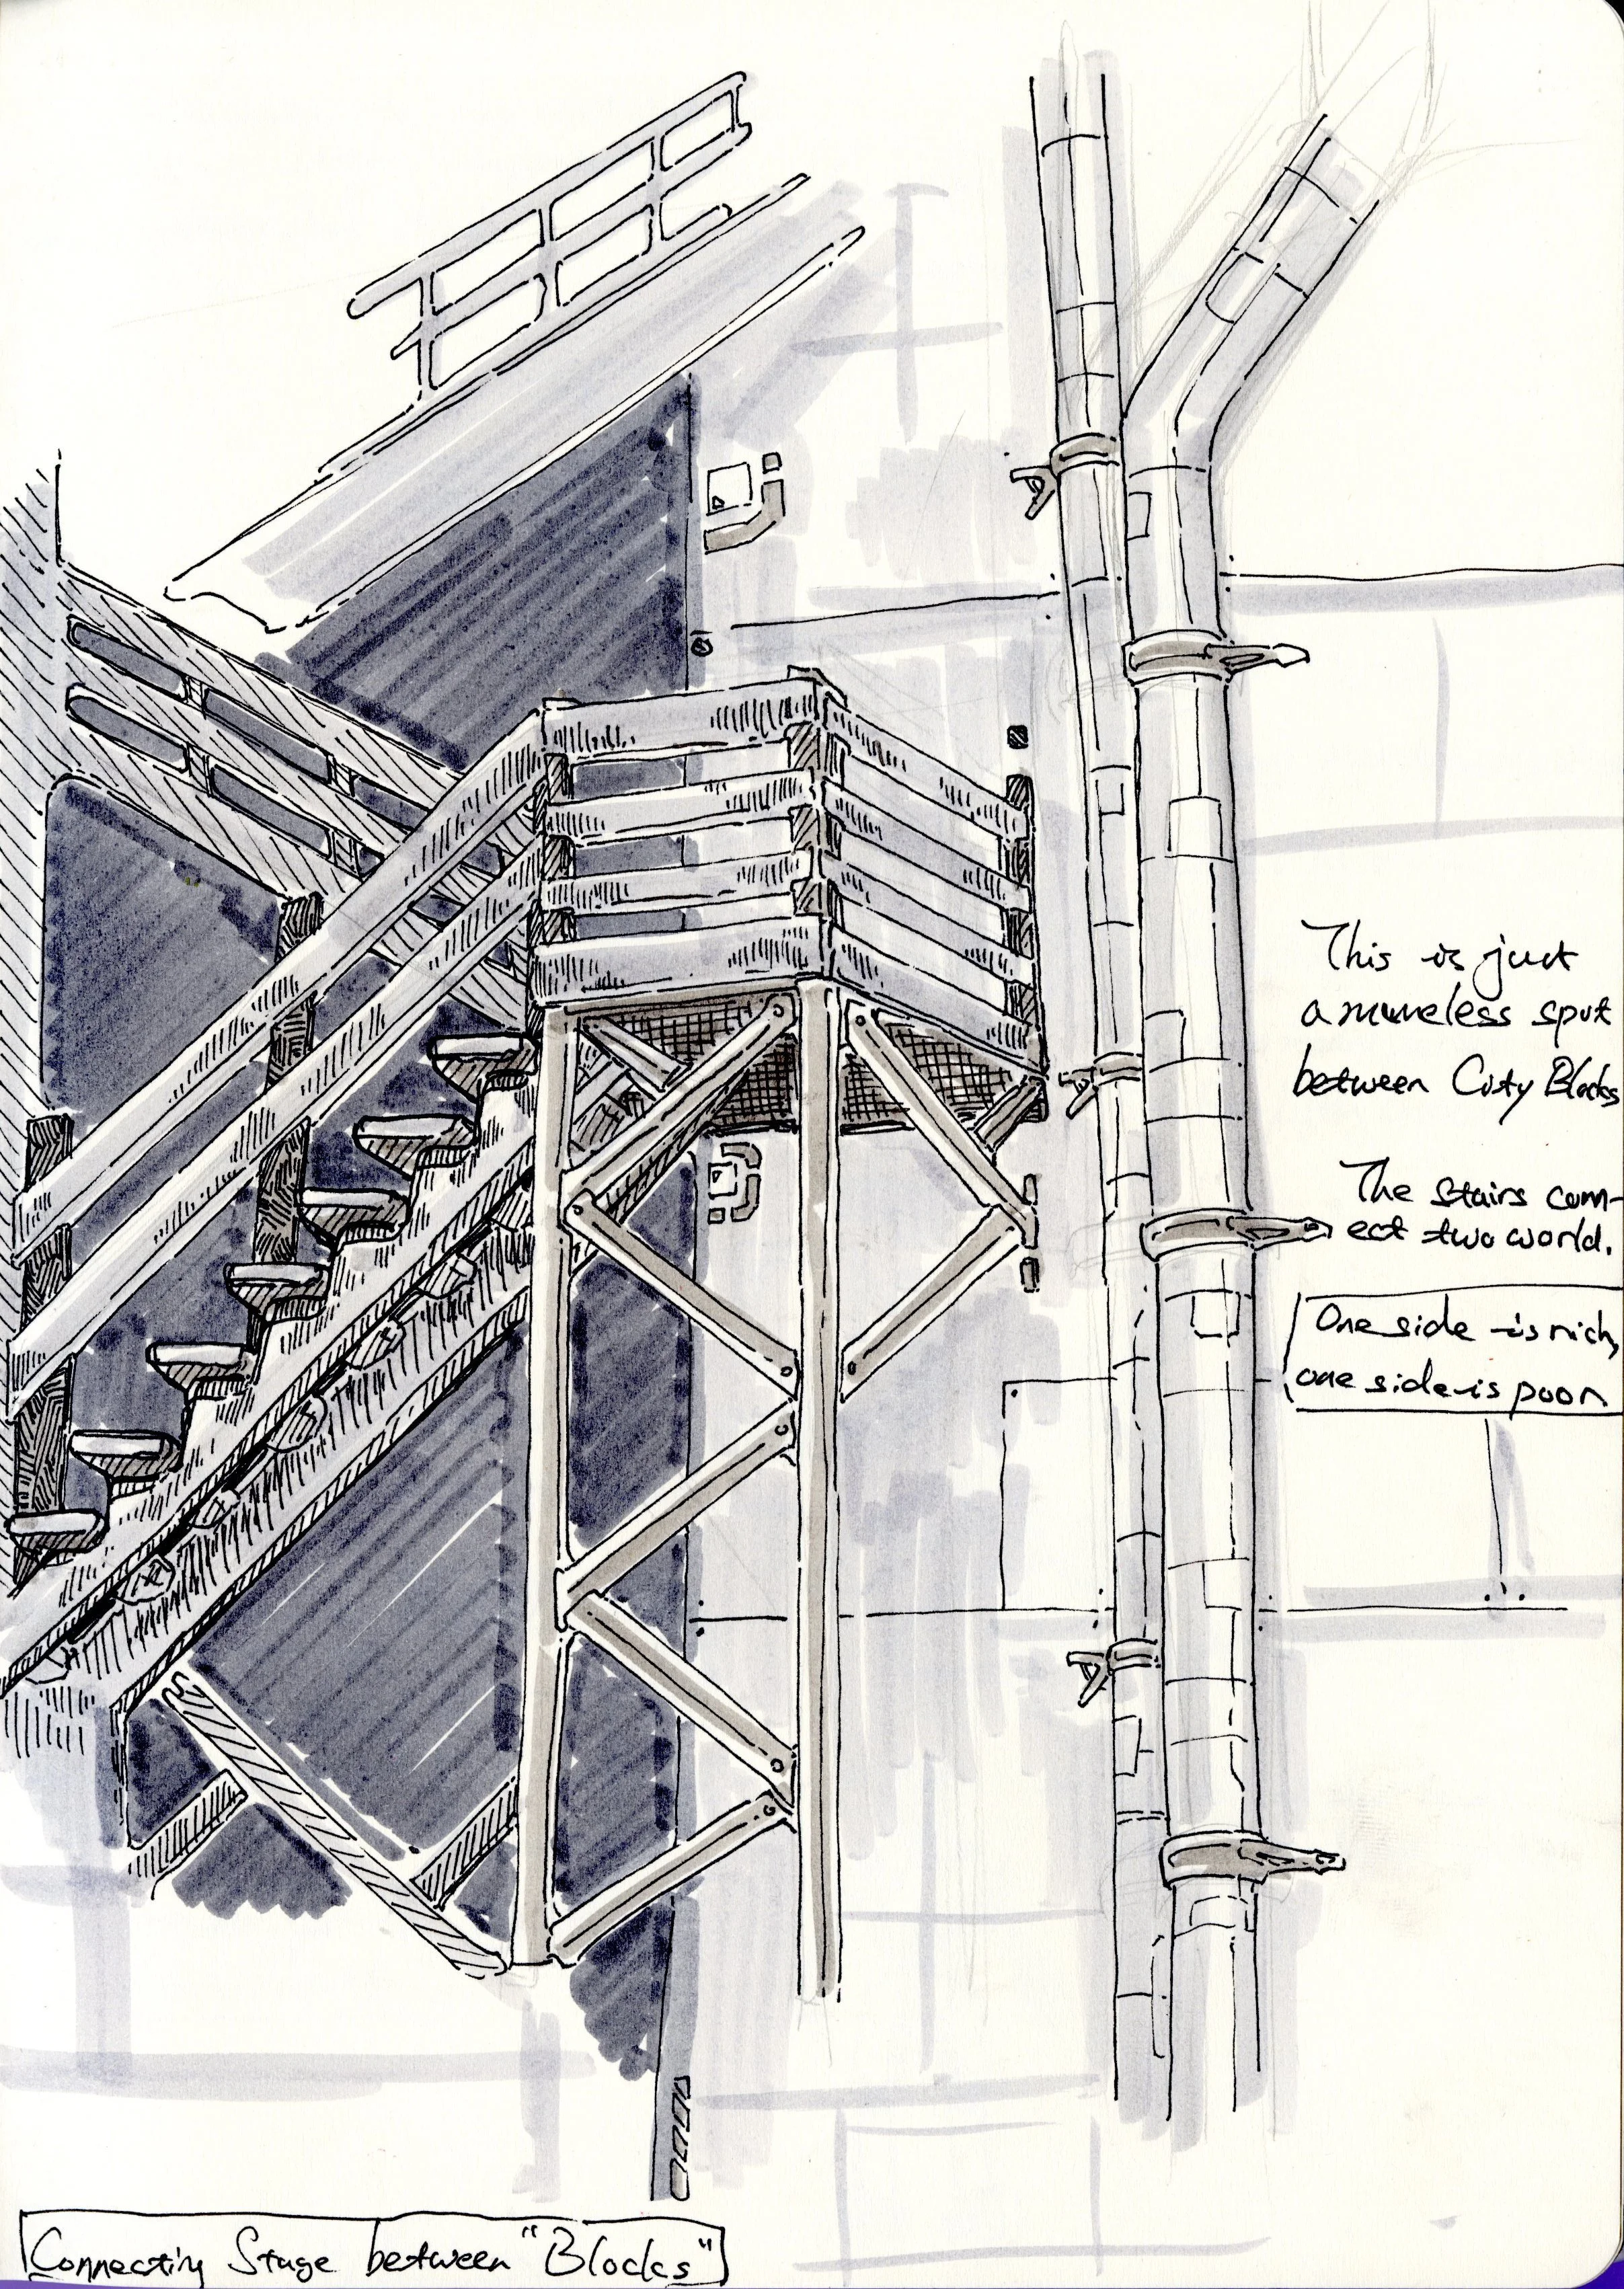 This is just
a nameless spot
between City Blocks
The stairs conn-
ect two world.
One side is rich,
one side is poor
Connecting Stage between "Blocks"